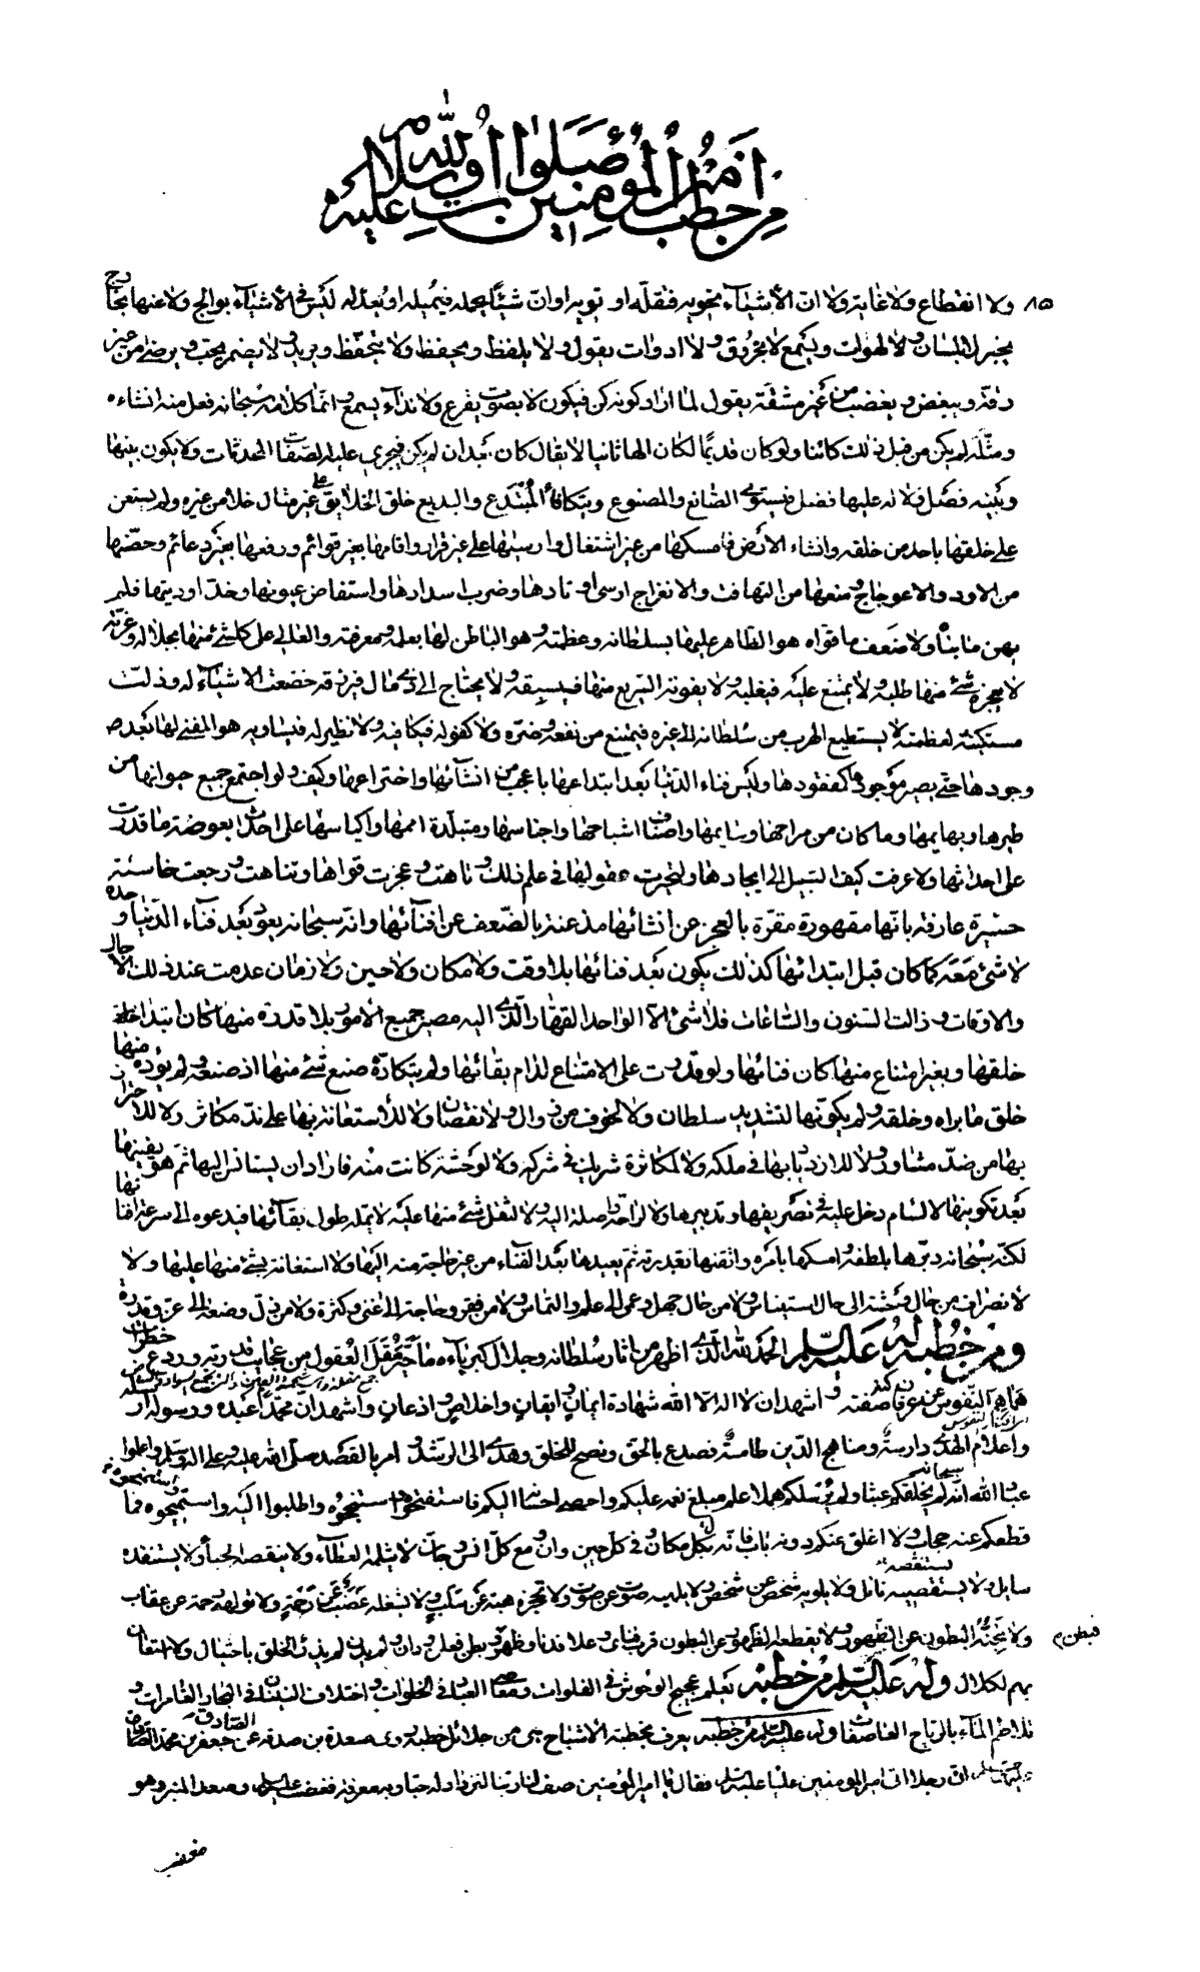 من خطب أمير المؤمنين صلوات الله وسلامه عليه
٨٥ ولا انقطاع ولا غاية ولا ان الأشياء تحويه فتقله او تهويه او ان شيئا يحمله فيميله او يعدله ليس في الأشياء بوالج ولا عنها بخارج
يخبر لا بلسان ولا لهوات ويسمع لا بخروق ولا ادوات يقول ولا يلفظ ويحفظ ولا يتحفظ ويريد ولا يضمر يحب ويرضى من غير
رقة ويبغض ويغضب من غير مشقة يقول لما اراد كونه كن فيكون لا بصوت يقرع ولا نداء يسمع وانما كلامه سبحانه فعل منه انشاءه
ومثله لم يكن من قبل ذلك كائنا ولو كان قديما لكان الها ثانيا لا يقال كان بعد ان لم يكن فيجري عليه الصفات المحدثات ولا يكون بينها
وبينه فصل ولا له عليها فضل فيستوي الصانع والمصنوع ويتكافأ المبتدع والبديع خلق الخلايق على غير مثال خلا من غيره ولم يستعن
على خلقها باحد من خلقه وانشاء الارض فامسكها من غير اشتغال وارسيها على غير قرار واقامها بغير قوائم ورفعها بغير دعائم وحصنها
من الاود والاعوجاج ومنعها من التهافت والانفراج ارسى اوتادها وضرب اسدادها واستفاض عيونها وخد اوديتها فلم
يهن ما بناه ولا ضعف ما قواه هو الظاهر عليها بسلطانه وعظمته وهو الباطن لها بعلمه ومعرفته والعالي على كل شئ منها بجلاله وعزته
لا يعجزه شئ منها طلبه ولا يمتنع عليه فيغلبه ولا يفوته السريع منها فيسبقه ولا يحتاج الى ذي مال فيرزقه خضعت الاشياء له وذلت
مستكينة لعظمته لا يستطيع الهرب من سلطانه الى غيره فيمتنع من نفعه وضره ولا كفو له فيكافيه ولا نظير له فيساويه هو المفني لها بعد
وجودها حتى يصير موجودها كمفقودها وليس فناء الدنيا بعد ابتداعها باعجب من انشائها واختراعها وكيف ولو اجتمع جميع حيوانها من
طيرها وبهايمها وما كان من مراحها وسايمها واصناف اشباحها واجناسها ومتبلدة اممها واكياسها على احداث بعوضة ما قدرت
على احداثها ولا عرفت كيف السبيل الى ايجادها ولتحيرت عقولها في علم ذلك وتاهت وعجزت قواها وتناهت ورجعت خاسئة
حسيرة عارفة بانها مقهورة مقرة بالعجز عن انشائها مذعنة بالضعف عن افنائها وانه سبحانه يعود بعد فناء الدنيا وحده
لا شئ معه كما كان قبل ابتدائها كذلك يكون بعد فنائها بلا وقت ولا مكان ولا حين ولا زمان عدمت عند ذلك الاجال
والاوقات وزالت السنون والساعات فلا شئ الا الواحد القهار الذي اليه مصير جميع الأمور بلا قدرة منها كان ابتداء
خلقها وبغير امتناع منها كان فنائها ولو قدرت على الامتناع لدام بقائها ولم يتكأده صنع شئ منها اذ صنعه ولم يؤده منها
خلق ما براه وخلقه ولم يكونها لتشديد سلطان ولا لخوف من زوال ولا نقصان ولا للأستعانة بها على ند مكاثر ولا للاحتراز
بها من ضد مثاور ولا للازدياد بها في ملكه ولا لمكاثرة شريك في شركه ولا لوحشة كانت منه فاراد ان يستانس اليها ثم هو يفنيها
بعد تكوينها لا لسام دخل عليه في تصريفها وتدبيرها ولا لراحة واصلة اليه ولا لثقل شئ منها عليه لا يمله طول بقائها فيدعوه الى سرعة افنائها
لكنه سبحانه دبرها بلطفه وامسكها بامره واتقنها بقدرته ثم يعيدها بعد الفناء من غير حاجة منه اليها ولا استعانة بشئ منها عليها ولا
لانصراف من حال وحشة الى حال استيناس ولا من حال جهل وعمى الى علم والتماس ولا من فقر وحاجة الى غنى وكثرة ولا من ذل وضعة الى عز وقدرة
ومن خطبة له عليه السلم الحمد لله الذي اظهر من اثار سلطانه وجلال كبريائه ما حير مقل العقول من عجايب قدرته وردع خطرات
هماهم النفوس عن عرفان كنه صفته واشهد ان لا اله الا الله شهادة ايمان وايقان واخلاص واذعان واشهد ان محمدا عبده ورسوله ارسله
واعلام الهدى دارسة ومناهج الدين طامسة فصدع بالحق ونصح للخلق وهدى الى الرشد وامر بالقصد صلى الله عليه وعلى اله وسلم واعلموا
عباد الله انه لم يخلقكم عبثا ولم يرسلكم هملا علم مبلغ نعمه عليكم واحصى احسانه اليكم فاستفتحوه واستنجحوه واطلبوا اليه واستميحوه فما
قطعكم عنه حجاب ولا اغلق عنكم دونه باب فانه لبكل مكان وفي كل حين واوان ومع كل انس وجان لا يثلمه العطاء ولا ينقصه الحباء ولا يستنفده
سايل ولا يستقصيه نائل ولا يلويه شخص عن شخص ولا يلهيه صوت عن صوت ولا تحجزه هبة عن سلب ولا يشغله غضب عن رحمة ولا تولهه رحمة عن عقاب
ولا يجنه البطون عن الظهور ولا يقطعه الظهور عن البطون قرب فناى وعلا فدنا وظهر وبطن فعلن ودان ولم يدن لم يذرأ الخلق باحتيال ولا استعان
فبطن
بهم لكلال وله عليه السلم من خطبة يعلم عجيج الوحوش في الفلوات ومعاصي العباد في الخلوات واختلاف النينان في البحار الغامرات و
تلاطم الماء بالرياح العاصفات وله عليه السلم من خطبة يعرف بخطبة الأشباح هي من جلائل خطبه روى مسعدة بن صدقة عن جعفر بن محمد الصادق
عليهما السلم ان رجلا اتى امير المؤمنين عليا عليه السلم فقال يا امير المؤمنين صف لنا ربنا لنزداد له حبا وبه معرفة فغضب عليه السلم وصعد المنبر وهو
مغضب